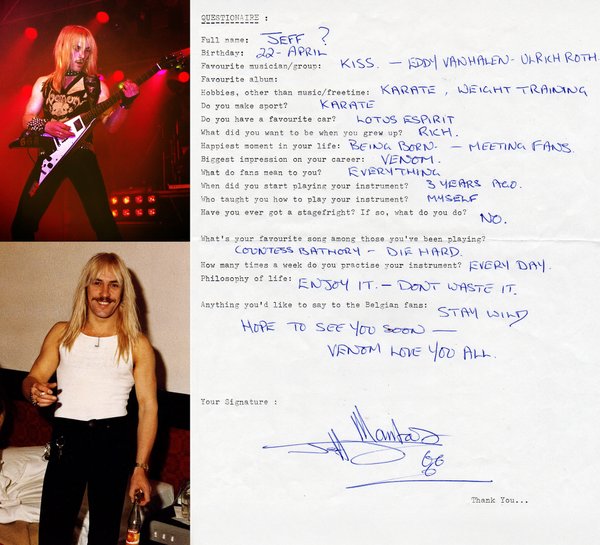 VENOM
QUESTIONAIRE :
Full name: JEFF ?
Birthday: 22 - APRIL
Favourite musician/group: KISS. - EDDY VANHALEN - ULRICH ROTH.
Favourite album:
Hobbies, other than music/freetime: KARATE, WEIGHT TRAINING
Do you make sport? KARATE
Do you have a favourite car? LOTUS ESPIRIT
What did you want to be when you grew up? RICH.
Happiest moment in your life: BEING BORN. - MEETING FANS.
Biggest impression on your career: VENOM.
What do fans mean to you? EVERYTHING
When did you start playing your instrument? 3 YEARS AGO.
Who taught you how to play your instrument? MYSELF
Have you ever got a stagefright? If so, what do you do? NO.
What's your favourite song among those you've been playing?
COUNTESS BATHORY - DIE HARD.
How many times a week do you practise your instrument? EVERY DAY.
Philosophy of life: ENJOY IT. - DONT WASTE IT.
Anything you'd like to say to the Belgian fans: STAY WILD
HOPE TO SEE YOU SOON -
VENOM LOVE YOU ALL.
Your Signature :
Jeff Mantas
666
Thank You...